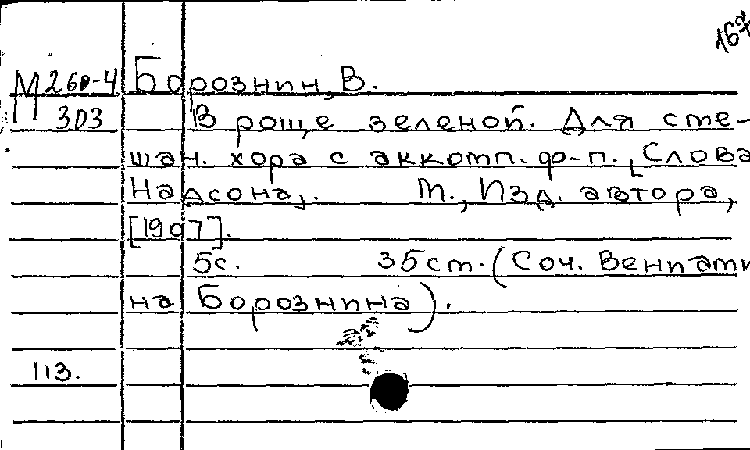 167
М 260-4 Борознин, В.
303 В роще зеленой. Для сме-
шан. хора с аккомп. ф-п. [Слова
Надсона]. М., Изд. автора,
[1907].
5с. 35 cm. (Соч. Вениами
на Борознина).
113.